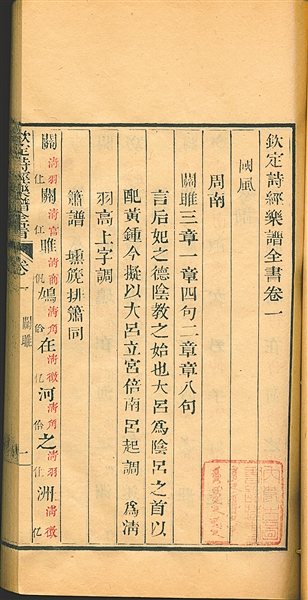 欽定詩經樂譜全書卷一
國風
周南
關雎三章一章四句二章章八句
言后妃之德陰教之始也大呂為陰呂之首以
配黃鍾今擬以大呂立宮倍南呂起調 為清
羽高上字調
簫譜 壎篪排簫同
關清羽仕關清宮仜雎清商𠆩鳩清角在清徵億河清角之清羽仕洲清徵億
欽定詩經樂譜全書 卷一 關雎 一